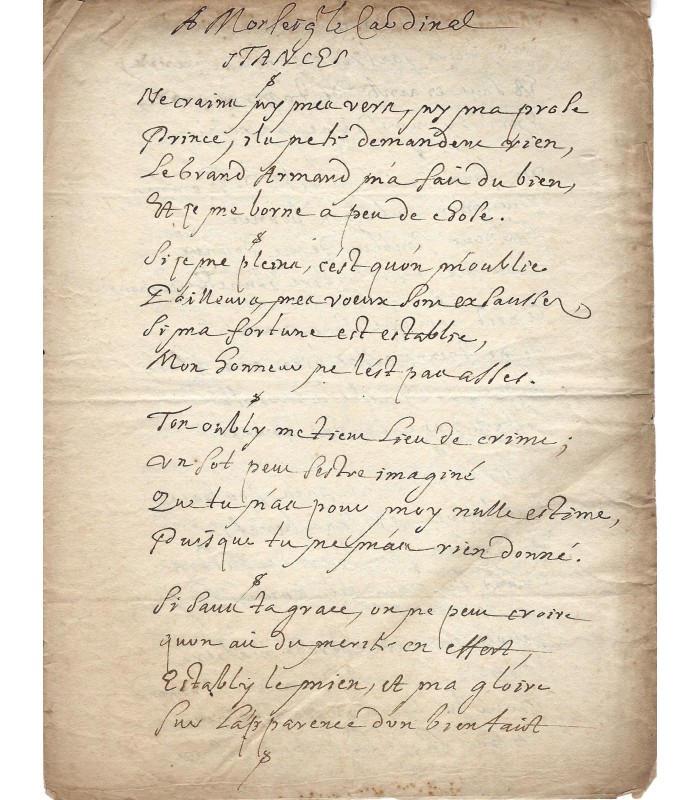 A Monseig.r le Cardinal
STANCES
Ne crains ny mes vers, ny ma prose
Prince, ils ne te demandent rien,
Le Grand Armand m'a fait du bien,
Et je me borne a peu de chose.
Si je me pleins, c'est qu'on m'oublie
D'ailleurs mes voeux sont exhaussés,
Si ma fortune est establie,
Mon honneur ne l'est pas assés.
Ton oubly me tient lieu de crime;
un sot peut s'estre imaginé
Que tu n'as pour moy nulle estime,
Puisque tu ne m'as rien donné.
Si sans ta grace, on ne peut croire
qu'on ait du merite en effect,
Establÿ le mien, et ma gloire
Sur l'apparence d'un bienfait